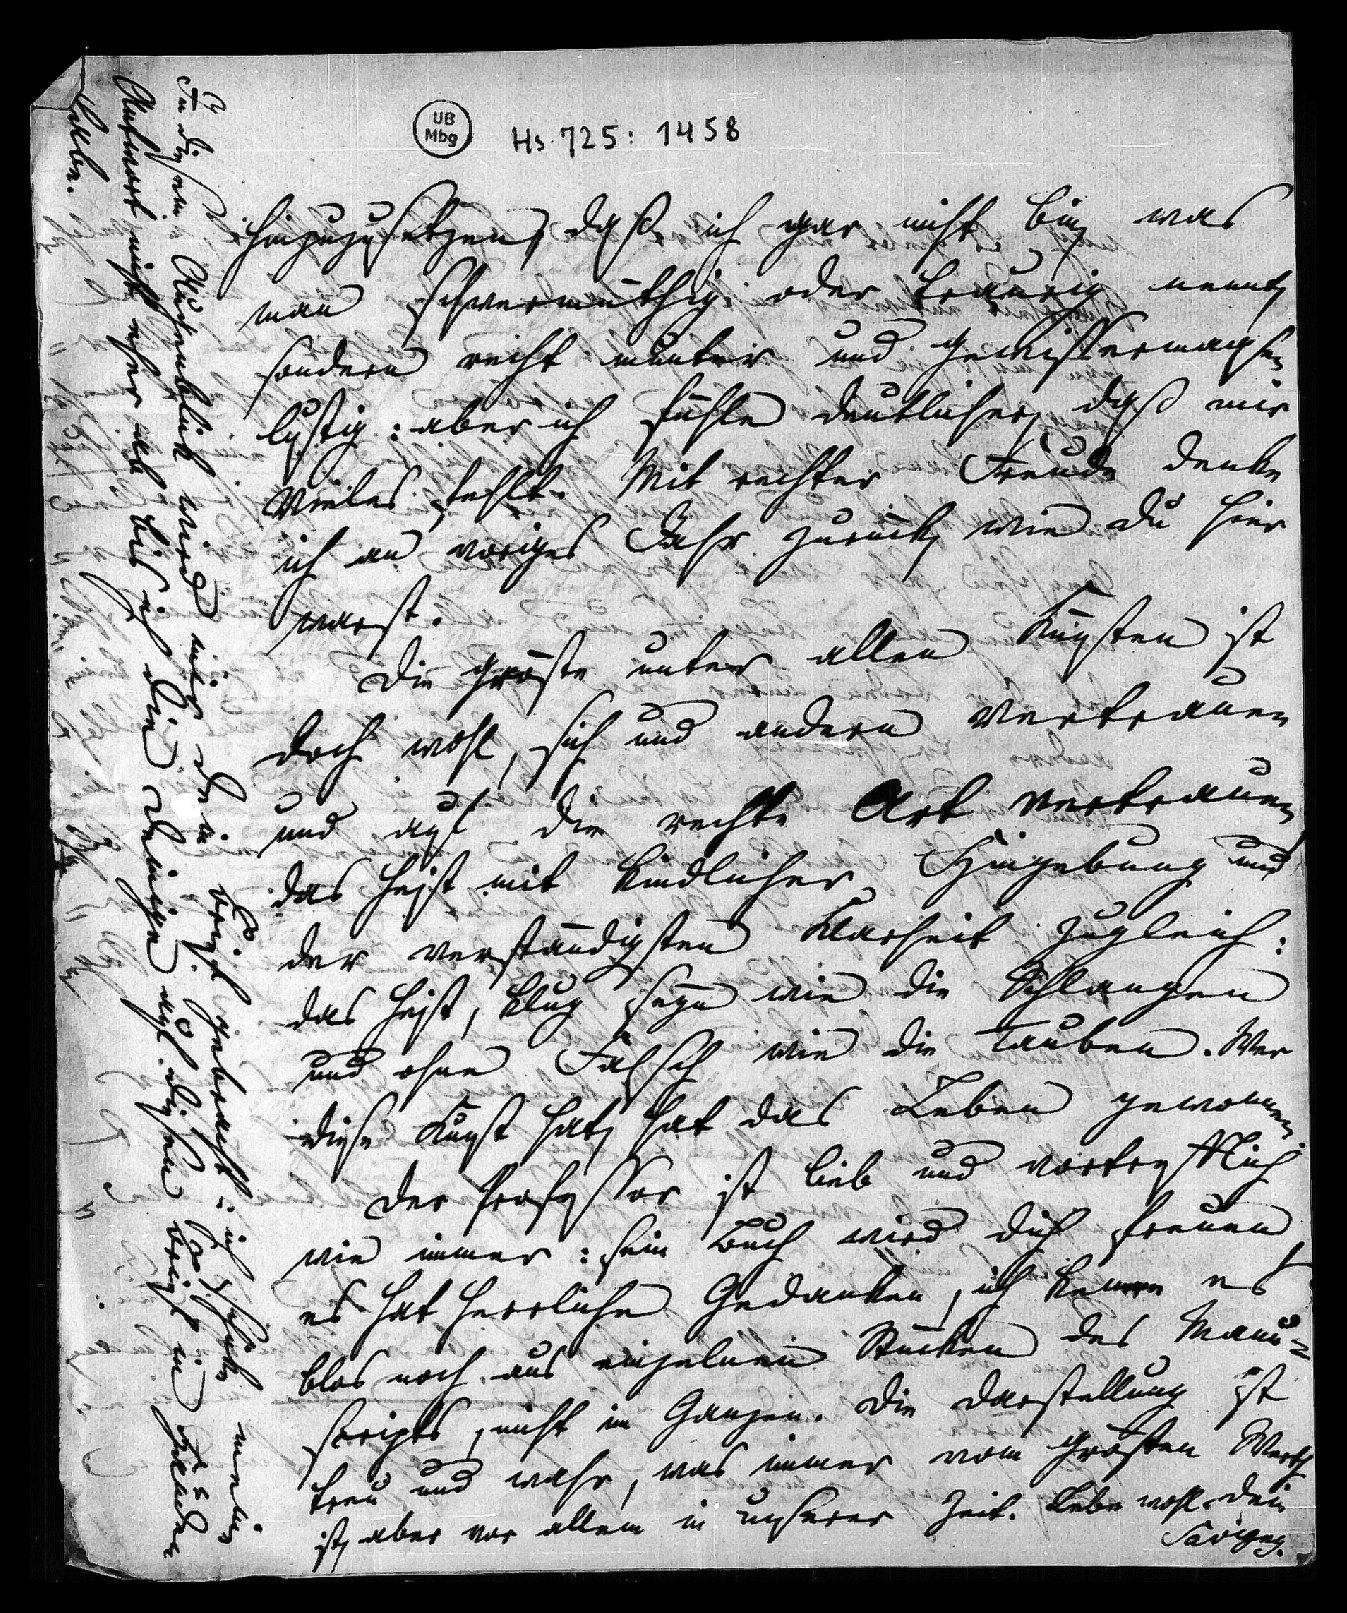 UB
Mbg
Hs. 725: 1458
hinzuzusetzen, daß ich gar nicht bin, was
man schwermüthig oder traurig nennt,
sondern recht munter und gewissermaßen
lustig: aber ich fühle deutlicher, daß mir
Vieles fehlt. Mit rechter Freude denke
ich an voriges Jahr zurück, wie du hier
warst.
Die gröste unter allen Künsten ist
doch wohl, sich und andern vertrauen
und auf die rechte Art vertrauen,
das heist mit kindlicher Hingebung und
der verständigsten Klarheit zugleich:
das heist, klug seyn wie die Schlangen
und ohne Falsch wie die Tauben. Wer
diese Kunst hat, hat das Leben gewonnen.
Der Professor ist lieb und vortrefflich
wie immer: sein Buch wird dich freuen,
es hat herrliche Gedanken, ich kenne es
blos noch aus einzelnen Stücken des Manu-
scripts, nicht im Ganzen. Die Darstellung ist
treu und wahr, was immer vom grösten Werth
ist, aber vor allem in unserer Zeit. Lebe wohl. Dein
Savigny.
In diesem Augenblick wird mir dein Brief gebracht: ich schicke meine
Antwort nicht eher ab bis ich die deinige auf diesen Brief in Händen
habe.